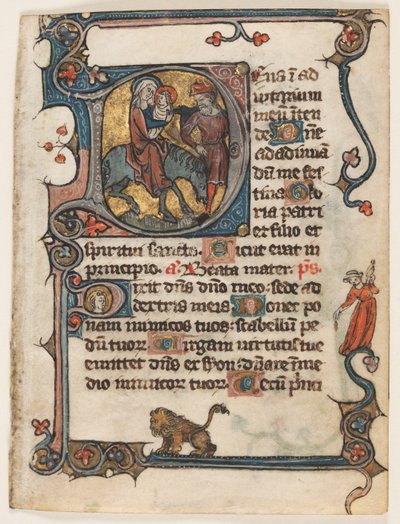 Eus ī ad
iutorium
meū ītēn
de. Dn̄e
ad adiuuā
dū me fes
tina Glo
ria patri
et filio et
spiritui sancto. Sicut erat in
principio. a. Beata mater. ps.
Dixit dn̄s dn̄o meo: sede ad
dextris meis Donec po
nam inimicos tuos: scabellū pe
dū tuor Uirgam uirtutis tue
emittet dn̄s ex syon: dn̄are ī me
dio inimicor tuor. Tecū prīci